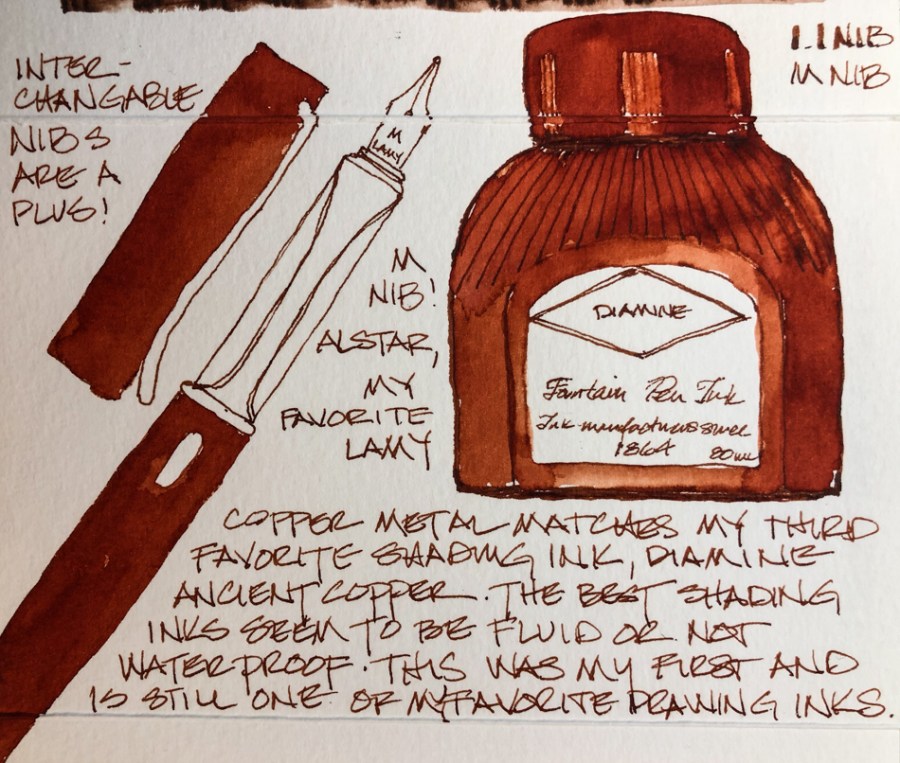 INTER-
CHANGABLE
NIBS
ARE A
PLUS!
1.1 NIB
M NIB
M
LAMY
M
NIB!
ALSTAR,
MY
FAVORITE
LAMY
DIAMINE
Fountain Pen Ink
Ink manufacturers since
1864 80ml
COPPER METAL MATCHES MY THIRD
FAVORITE SHADING INK, DIAMINE
ANCIENT COPPER. THE BEST SHADING
INKS SEEM TO BE FLUID OR NOT
WATERPROOF. THIS WAS MY FIRST AND
IS STILL ONE OF MY FAVORITE DRAWING INKS.